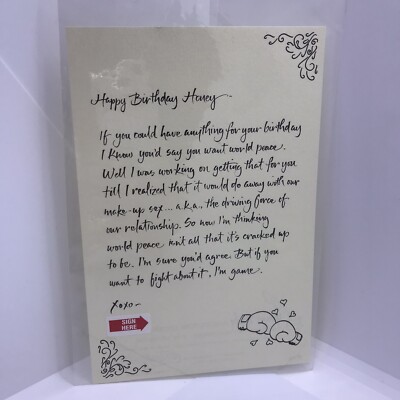 Happy Birthday Honey
If you could have anything for your birthday
I know you'd say you want world peace.
Well I was working on getting that for you
till I realized that it would do away with our
make-up sex... a.k.a., the driving force of
our relationship. So now I'm thinking
world peace isn't all that it's cracked up
to be. I'm sure you'd agree. But if you
want to fight about it, I'm game.
xoxo~
SIGN
HERE